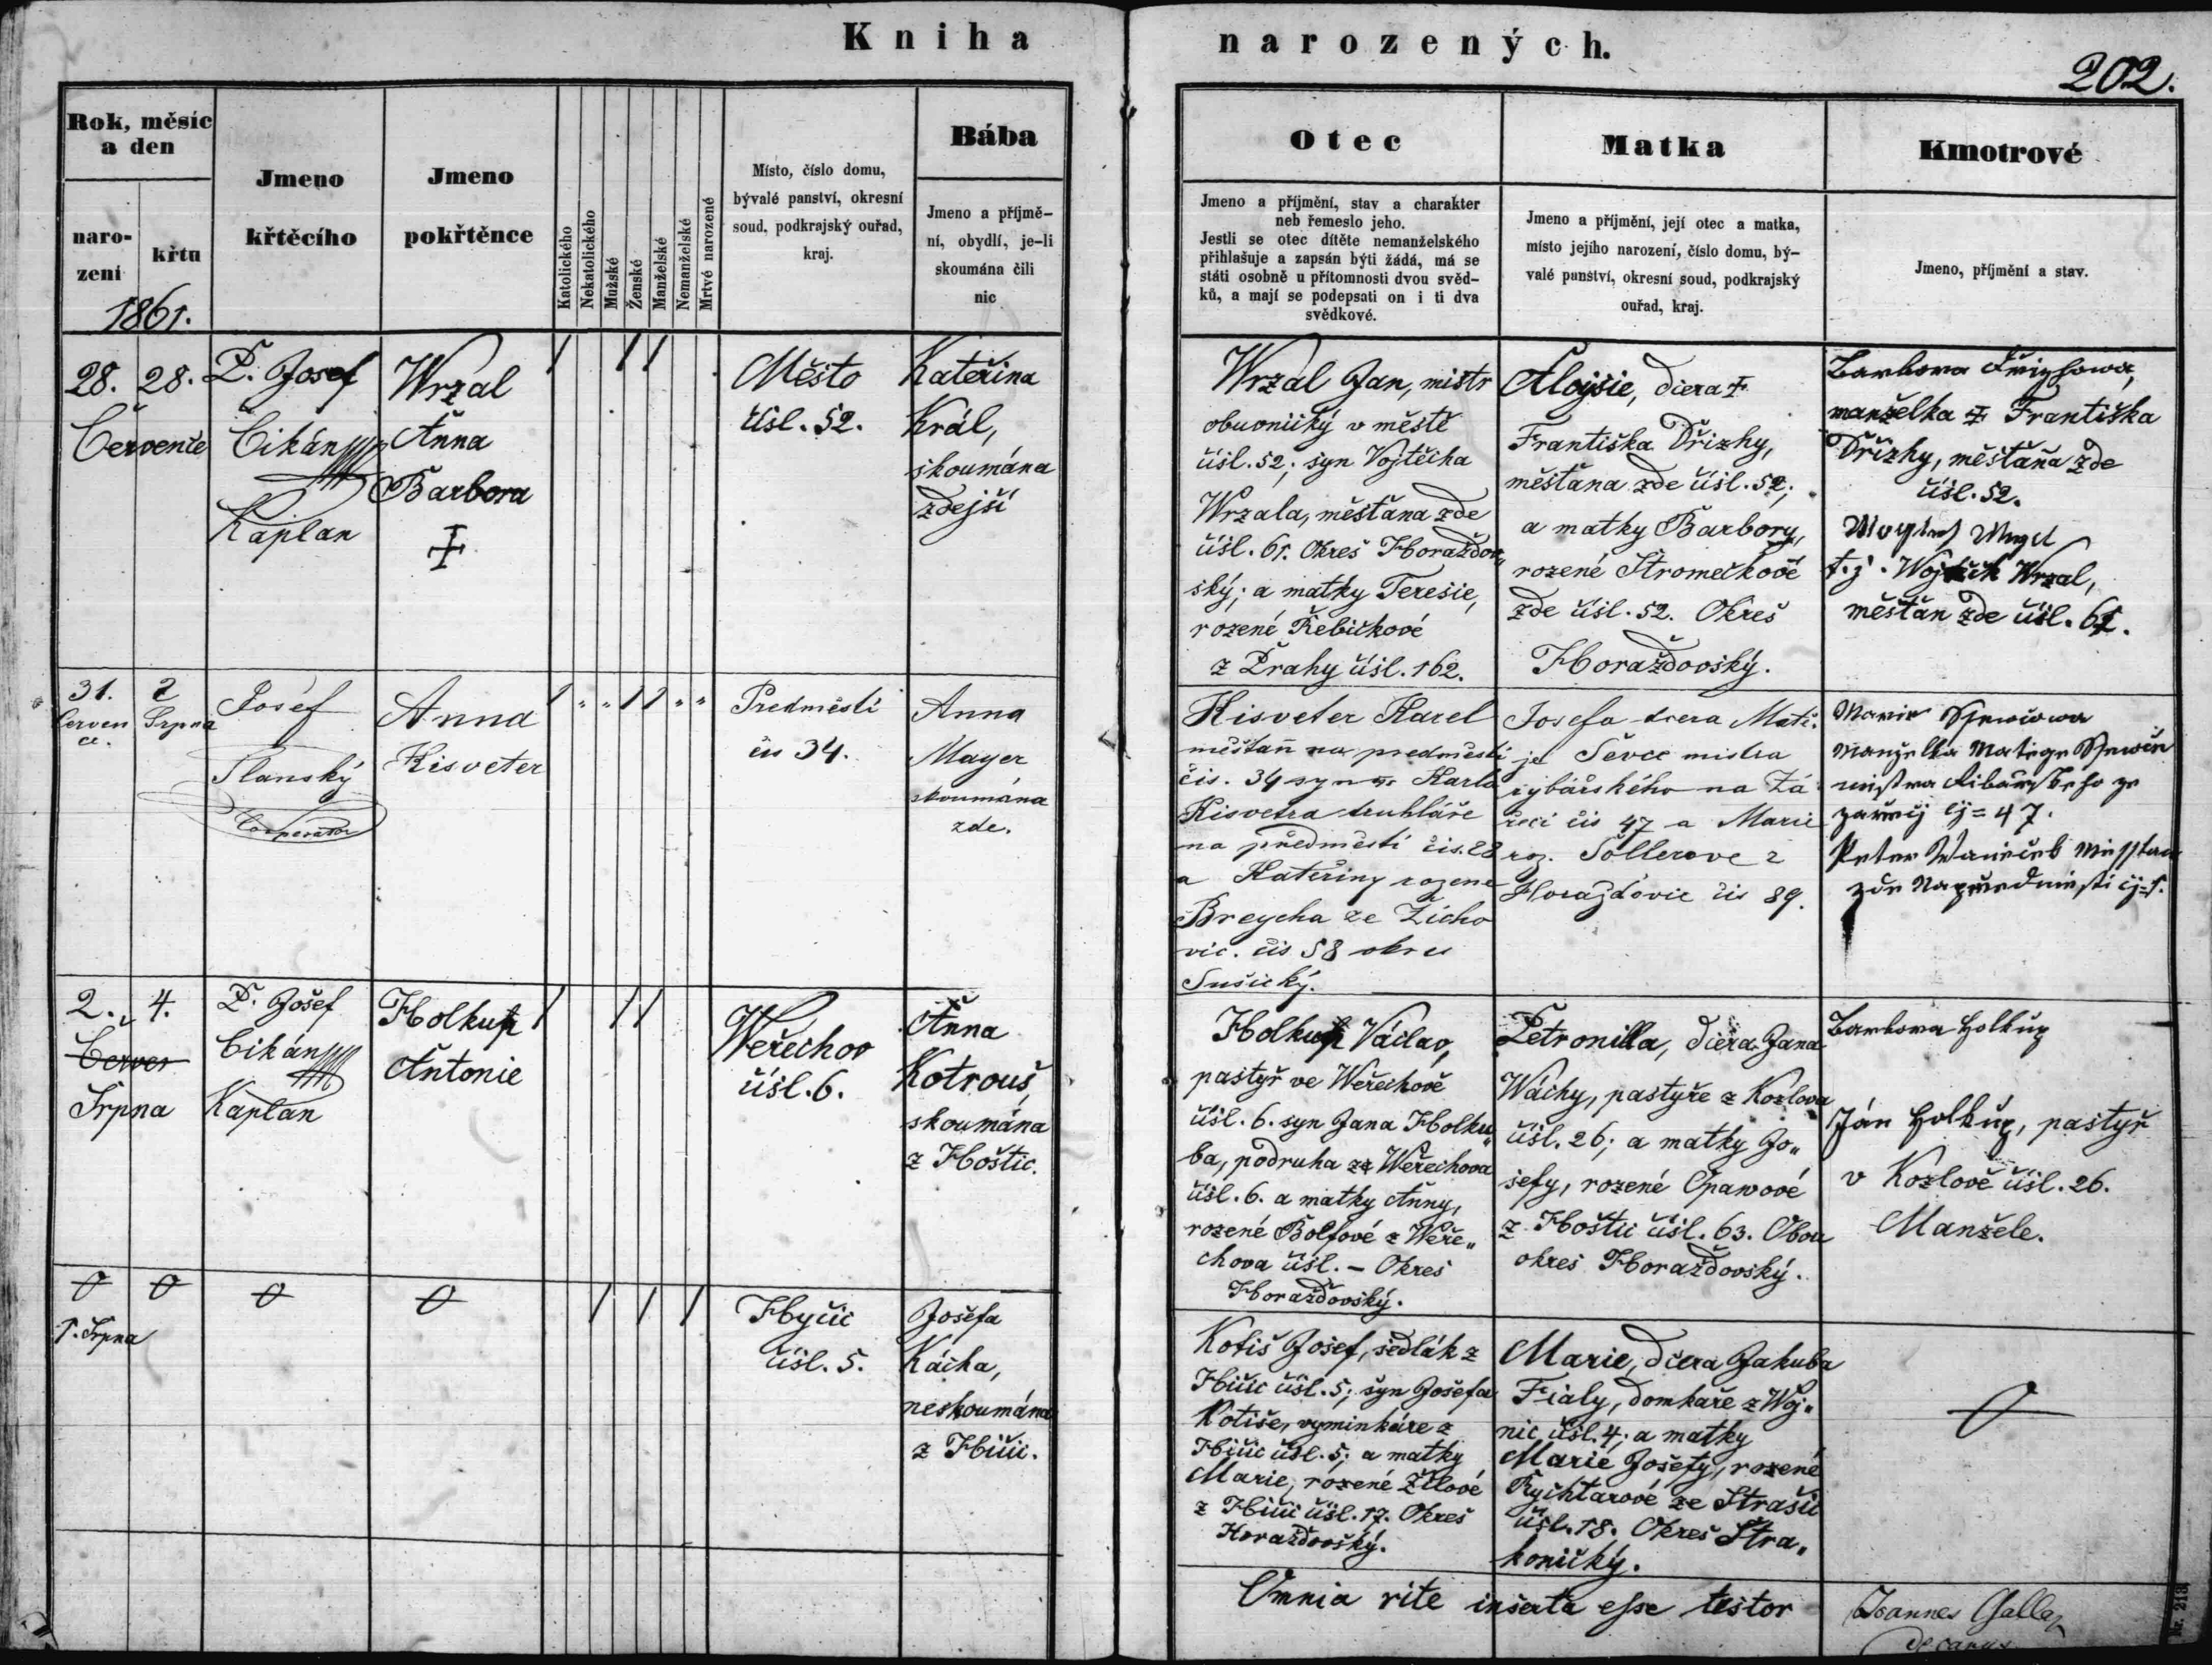 Kniha narozených.
202.
Rok, měsíc
a den
naro-
zení
křtu
1861.
Jmeno
křtěcího
Jmeno
pokřtěnce
Katolického
Nekatolického
Mužské
Ženské
Manželské
Nemanželské
Mrtvé narozené
Místo, číslo domu,
bývalé panství, okresní
soud, podkrajský ouřad,
kraj.
Bába
Jmeno a příjmě-
ní, obydlí, je-li
skoumána čili
nic
Otec
Jmeno a příjmění, stav a charakter
neb řemeslo jeho.
Jestli se otec dítěte nemanželského
přihlašuje a zapsán býti žádá, má se
státi osobně u přítomnosti dvou svěd-
ků, a mají se podepsati on i ti dva
svědkové.
Matka
Jmeno a příjmění, její otec a matka,
místo jejího narození, číslo domu, bý-
valé panství, okresní soud, podkrajský
ouřad, kraj.
Kmotrové
Jmeno, příjmění a stav.
28. 28.
Července
P. Josef
Cikán
Kaplan
Wrzal
Anna
Barbora
Město
čísl. 52.
Kateřina
Král,
skoumána
zdejší
Wrzal Jan, mistr
obuvnický v městě
čísl. 52; syn Vojtěcha
Wrzala, měšťana zde
čísl. 61. Okres Horažďov„
ský; a matky Teresie,
rozené Řebíčkové
z Prahy čísl. 162.
Aloysie, dcera
Františka Dřizhy,
měšťana zde čísl. 52;
a matky Barbory,
rozené Stromečkové
zde čísl. 52. Okres
Horažďovský.
Barbora
manželka Františka
Dřizhy, měšťana zde
čísl. 52.
t. j. Wojtěch Wrzal,
měšťan zde čísl. 61.
31.
Červen
ce.
2
Srpna
Josef
Slanský
Cooperator
Anna
Kisveter
Predměsti
čis 34.
Anna
Mayer
skoumána
zde.
Kisveter Karel
měštan na predměsti
čis. 34 syn Karla
Kisvetra truhláře
na předměsti čis. 28
a Kateřiny rozene
Breycha ze Žicho
vic. čis 58 okres
Sušický.
Josefa dcera Matě-
je Ševce mistra
rybářského na Zá
řeci čis 47 a Marie
roz. Šollerove z
Horaždovic čis 89.
Marie
manželka Mateje
mistra ribařskeho ze
zařecj cj = 47.
Peter Wanieček Miesstan
zde Napředmiesti cj = 1.
2. 4.
Červen
Srpna
P. Josef
Cikán
Kaplan
Holkup
Antonie
Weřechov
čísl. 6.
Anna
Kotrouš,
skoumána
z Hoštic.
Holkup Václav,
pastýř ve Weřechově
čísl. 6. syn Jana Holku„
ba, podruha ze Weřechova
čísl. 6. a matky Anny,
rozené Bolfové z Weře„
chova čísl. – Okres
Horažďovský.
Petronilla, dcera Jana
Wáchy, pastýře z Kozlova
čísl. 26; a matky Jo„
sefy, rozené Opawové
z Hoštic čísl. 63. Obou
okres Horažďovský.
Barbora Holkup
Ján Holkup, pastýř
v Kozlově čísl. 26.
Manžele.
1. Srpna
Hyčic
čísl. 5.
Josefa
Kácha,
neskoumána
z Hičic.
Kotiš Josef, sedlák z
Hičic čísl. 5; syn Josefa
Kotiše, vyminkáre z
Hičic čísl. 5; a matky
Marie, rozené Žílové
z Hičic čísl. 17. Okres
Horažďovský.
Marie, dcera Jakuba
Fialy, domkaře z Woj„
nic čísl. 4; a matky
Marie Josefy, rozené
Rychtárové ze Strašic
čísl. 18. Okres Stra„
konický.
Omnia rite inserta esse testor
Joannes Galla
decanus
Nr. 213